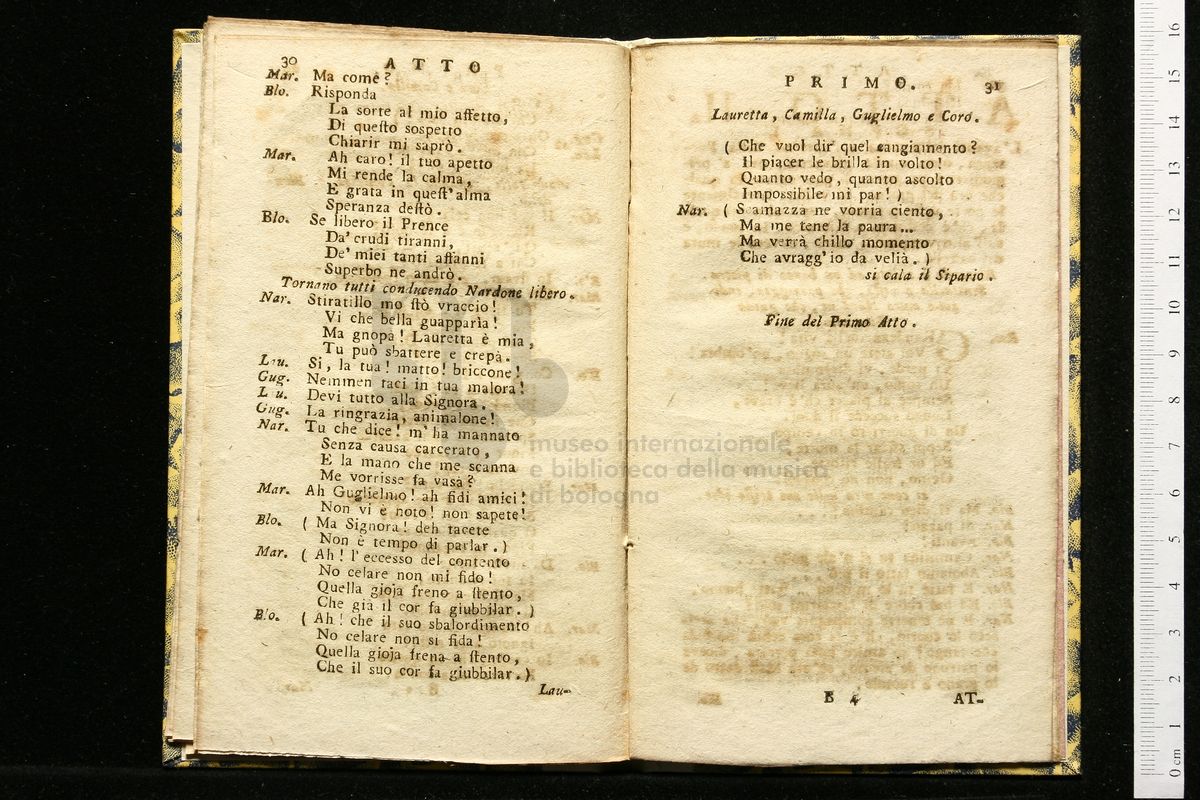 30 ATTO
Mar. Ma come?
Blo. Risponda
La sorte al mio affetto,
Di questo sospetto
Chiarir mi saprò.
Mar. Ah caro! il tuo apetto
Mi rende la calma,
E grata in quest'alma
Speranza destò.
Blo. Se libero il Prence
Da' crudi tiranni,
De' miei tanti affanni
Superbo ne andrò.
Tornano tutti conducendo Nardone libero.
Nar. Stiratillo mo stò vraccio!
Vi che bella guapparìa!
Ma gnopà! Lauretta è mia,
Tu può sbattere e crepà.
Lau. Si, la tua! matto! briccone!
Gug. Nemmen taci in tua malora!
Lau. Devi tutto alla Signora.
Gug. La ringrazia, animalone!
Nar. Tu che dice! m'ha mannato
Senza causa carcerato,
E la mano che me scanna
Me vorrisse fa vasà?
Mar. Ah Guglielmo! ah fidi amici!
Non vi è noto! non sapete!
Blo. (Ma Signora! deh tacete
Non è tempo di parlar.)
Mar. (Ah! l'eccesso del contento
No celare non mi fido!
Quella gioja freno a stento,
Che già il cor fa giubbilar.)
Blo. (Ah! che il suo sbalordimento
No celare non si fida!
Quella gioja frena a stento,
Che il suo cor fa giubbilar.)
Lau-
PRIMO. 31
Lauretta, Camilla, Guglielmo e Coro.
(Che vuol dir quel cangiamento?
Il piacer le brilla in volto!
Quanto vedo, quanto ascolto
Impossibile mi par!)
Nar. (Scamazza ne vorria ciento,
Ma me tene la paura...
Ma verrà chillo momento
Che avragg'io da velià.)
si cala il Sipario.
Fine del Primo Atto.
B 4 AT-
museo internazionale
e biblioteca della musica
di bologna
0 cm 1 2 3 4 5 6 7 8 9 10 11 12 13 14 15 16